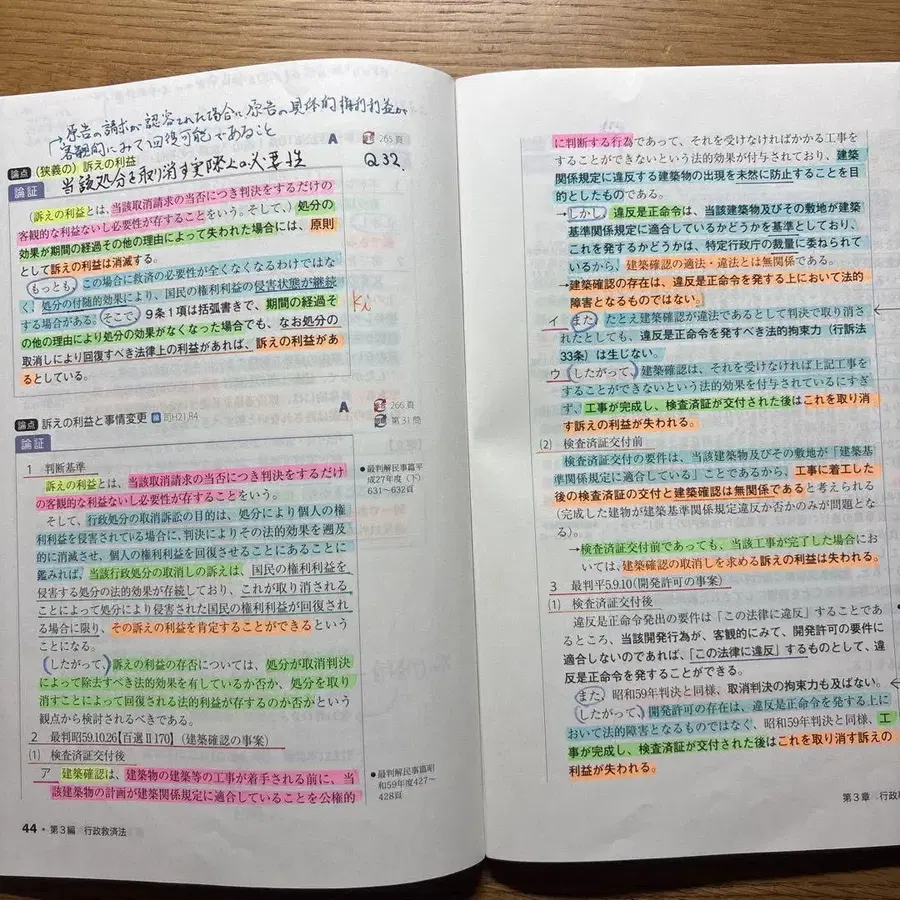 原告の請求が認容された場合に原告の具体的権利利益が
客観的にみて回復可能であること
論点 (狭義の) 訴えの利益
A
265頁
Q32
当該処分を取り消す実際上の必要性
論証
(訴えの利益とは、当該取消請求の当否につき判決をするだけの
客観的な利益ないし必要性が存することをいう。そして、) 処分の
効果が期間の経過その他の理由によって失われた場合には、原則
として訴えの利益は消滅する。
もっとも、この場合に救済の必要性が全くなくなるわけではな
く、処分の付随的効果により、国民の権利利益の侵害状態が継続
する場合がある。そこで、9条1項は括弧書きで、期間の経過そ
の他の理由により処分の効果がなくなった場合でも、なお処分の
取消しにより回復すべき法律上の利益があれば、訴えの利益があ
るとしている。
Ki
論点 訴えの利益と事情変更 司H21,R4
A
266頁
第31問
論証
1 判断基準
訴えの利益とは、当該取消請求の当否につき判決をするだけ
の客観的な利益ないし必要性が存することをいう。
そして、行政処分の取消訴訟の目的は、処分により個人の権
利利益を侵害されている場合に、判決によりその法的効果を遡及
的に消滅させ、個人の権利利益を回復させることにあることに
鑑みれば、当該行政処分の取消しの訴えは、国民の権利利益を
侵害する処分の法的効果が存続しており、これが取り消される
ことによって処分により侵害された国民の権利利益が回復され
る場合に限り、その訴えの利益を肯定することができるという
ことになる。
(したがって、)訴えの利益の存否については、処分が取消判決
によって除去すべき法的効果を有しているか否か、処分を取り
消すことによって回復される法的利益が存するのか否かという
観点から検討されるべきである。
●最判解民事篇平
成27年度(下)
631~632頁
2 最判昭59.10.26【百選Ⅱ170】(建築確認の事案)
(1) 検査済証交付後
ア 建築確認は、建築物の建築等の工事が着手される前に、当
該建築物の計画が建築関係規定に適合していることを公権的
●最判解民事篇昭
和59年度427~
428頁
44・第3編 行政救済法
に判断する行為であって、それを受けなければかかる工事を
することができないという法的効果が付与されており、建築
関係規定に違反する建築物の出現を未然に防止することを目
的としたものである。
→しかし、違反是正命令は、当該建築物及びその敷地が建築
基準関係規定に適合しているかどうかを基準としており、
これを発するかどうかは、特定行政庁の裁量に委ねられてい
るから、建築確認の適法・違法とは無関係である。
→建築確認の存在は、違反是正命令を発する上において法的
障害となるものではない。
イ (また)たとえ建築確認が違法であるとして判決で取り消さ
れたとしても、違反是正命令を発すべき法的拘束力(行訴法
33条)は生じない。
ウ (したがって、)建築確認は、それを受けなければ上記工事を
することができないという法的効果を付与されているにすぎ
ず、工事が完成し、検査済証が交付された後はこれを取り消
す訴えの利益が失われる。
(2) 検査済証交付前
検査済証交付の要件は、当該建築物及びその敷地が「建築基
準関係規定に適合している」ことであるから、工事に着工した
後の検査済証の交付と建築確認は無関係であると考えられる
(完成した建物が建築基準関係規定違反か否かのみが問題とな
る)。
→検査済証交付前であっても、当該工事が完了した場合にお
いては、建築確認の取消しを求める訴えの利益は失われる。
3 最判平5.9.10(開発許可の事案)
(1) 検査済証交付後
違反是正命令発出の要件は「この法律に違反」することであ
るところ、当該開発行為が、客観的にみて、開発許可の要件に
適合しないのであれば、「この法律に違反」するものとして、違
反是正命令を発することができる。
(また)昭和59年判決と同様、取消判決の拘束力も及ばない。
(したがって、)開発許可の存在は、違反是正命令を発する上に
おいて法的障害となるものではなく、昭和59年判決と同様、工
事が完成し、検査済証が交付された後はこれを取り消す訴えの
利益が失われる。
第3章 行政